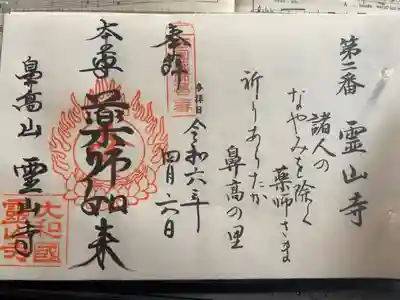 第二番 霊山寺
諸人の
なやみを除く
薬師さま
祈りあらたか
鼻高の里
参拝日 令和六年四月六日
奉拝
本尊 薬師如来
鼻高山 霊山寺
大和國
霊山寺